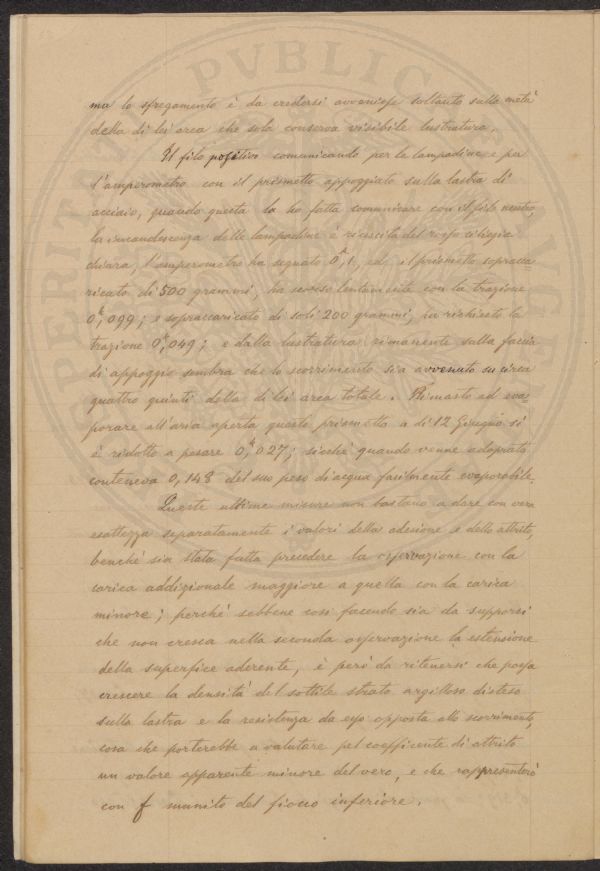 ma lo sfregamento è da credersi avvenisse soltanto sulla metà
della di lei area che sola conserva visibile lustratura.
Il filo positivo comunicando per le lampadine e per
l'amperometro con il prismetto appoggiato sulla lastra di
acciaio, quando questa la ho fatta comunicare con il filo neutro,
la incandescenza delle lampadine è riuscita del rosso ciliegia
chiara, l'amperometro ha segnato 0,ᴬ1, ed il prismetto sopracca=
ricato di 500 grammi, ha scorso lentamente con la trazione
0,ᵏ099; e sopraccaricato di soli 200 grammi, ha richiesto la
trazione 0,ᵏ049; e dalla lustratura rimanente sulla faccia
di appoggio sembra che lo scorrimento sia avvenuto su circa
quattro quinti della di lei area totale. Rimasto ad eva=
porare all'aria aperta questo prismetto a dì 12 Giugno si
è ridotto a pesare 0,ᵏ027; sicchè quando venne adoprato
conteneva 0,148 del suo peso d'acqua facilmente evaporabile.
Queste ultime misure non bastano a dare con vera
esattezza separatamente i valori della adesione e dello attrito,
benchè sia stata fatta precedere la osservazione con la
carica addizionale maggiore a quella con la carica
minore; perchè sebbene così facendo sia da supporsi
che non cresca nella seconda osservazione la estensione
della superfice aderente, è però da ritenersi che possa
crescere la densità del sottile strato argilloso disteso
sulla lastra e la resistenza da esso opposta allo scorrimento,
cosa che porterebbe a valutare pel coefficente di attrito
un valore apparente minore del vero, e che rappresenterò
con f munito del fiocco inferiore.
PVBLIC